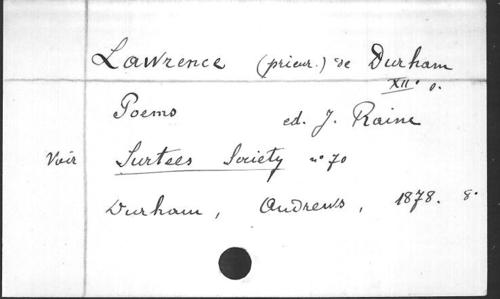 Lawrence (prieur.) de Durham
XII. s.
Poems ed. J. Raine
Voir Surtees Society n° 70
Durham, Andrews, 1878. 8°